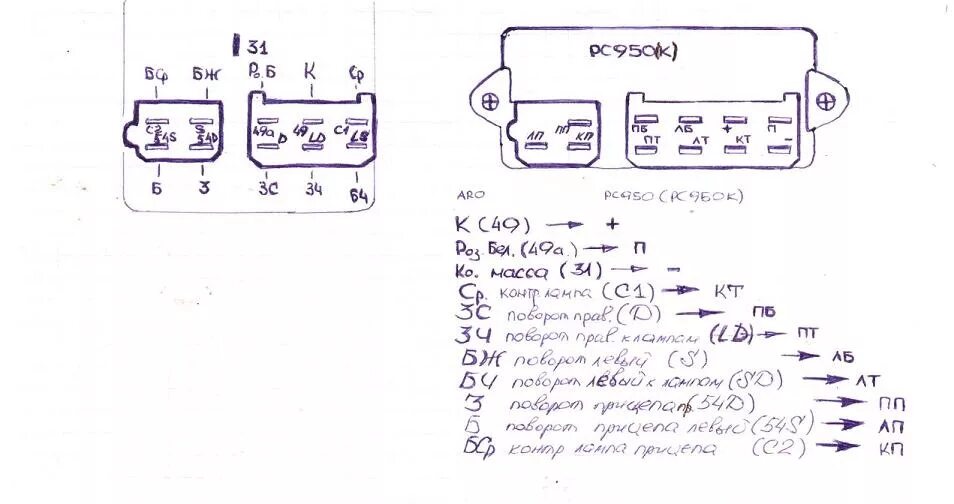 31
БЖ БЖ Роз.Б К Ср
С2 S 49а 49 С1
54S 54D D LD LS
Б З ЗС ЗЧ БЧ
РС950(К)
ЛП ПП КП
ПБ ЛБ + П
ПТ ЛТ КТ -
ARO РС950 (РС950К)
К (49) → +
Роз.Бел. (49а.) → П
Ко. масса (31) → -
Ср. контр лампа (С1) → КТ
ЗС поворот прав. (D) → ПБ
ЗЧ поворот прав. к лампам (LD) → ПТ
БЖ поворот левый (S) → ЛБ
БЧ поворот левый к лампам (SD) → ЛТ
З поворот прицепа пр. (54D) → ПП
Б поворот прицепа левый (54S) → ЛП
БСр контр лампа прицепа (С2) → КП